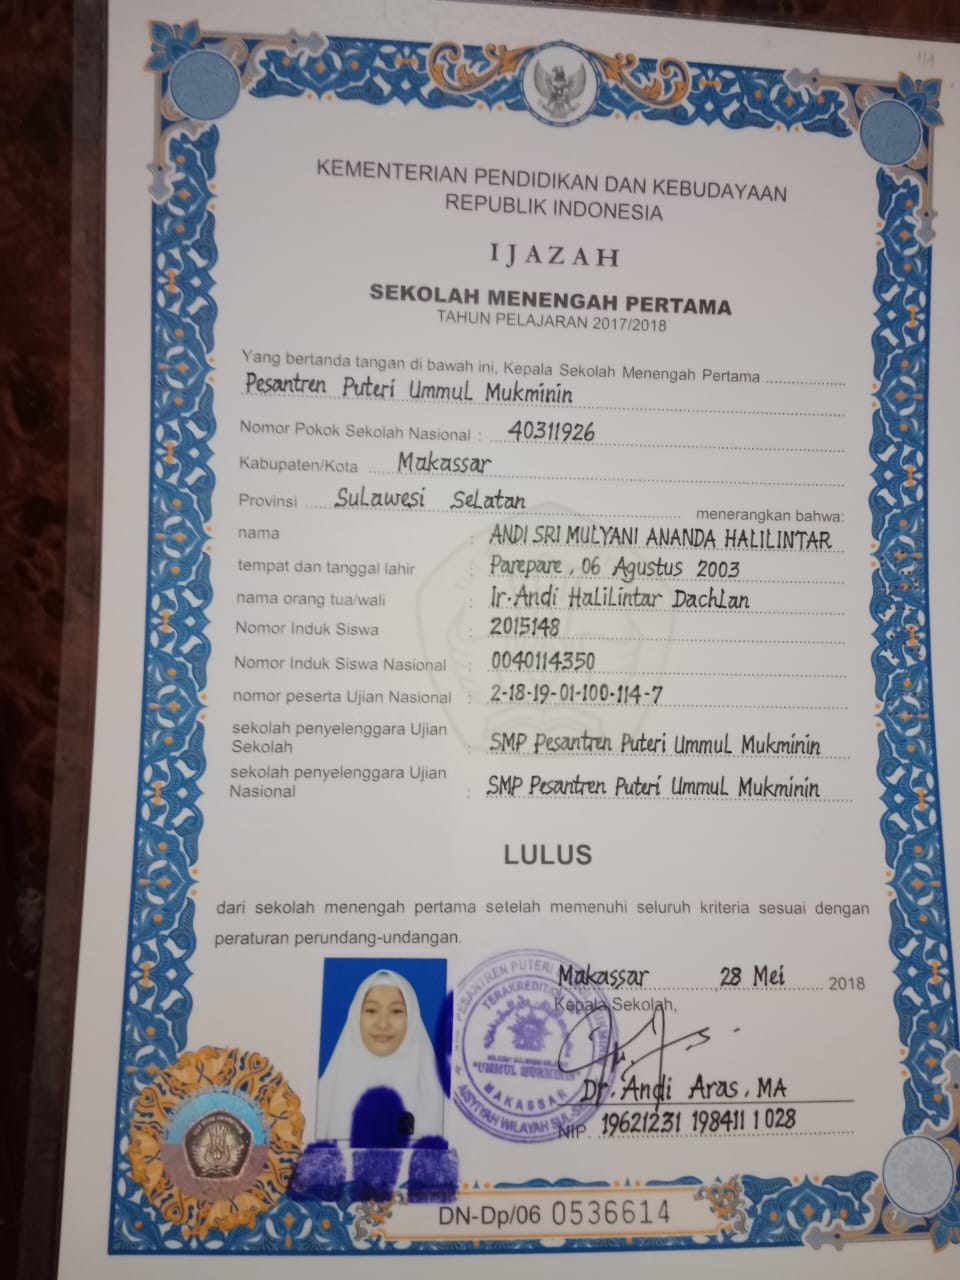 114
KEMENTERIAN PENDIDIKAN DAN KEBUDAYAAN
REPUBLIK INDONESIA
IJAZAH
SEKOLAH MENENGAH PERTAMA
TAHUN PELAJARAN 2017/2018
Yang bertanda tangan di bawah ini, Kepala Sekolah Menengah Pertama
Pesantren Puteri Ummul Mukminin
Nomor Pokok Sekolah Nasional : 40311926
Kabupaten/Kota Makassar
Provinsi Sulawesi Selatan menerangkan bahwa:
nama : ANDI SRI MULYANI ANANDA HALILINTAR
tempat dan tanggal lahir : Parepare, 06 Agustus 2003
nama orang tua/wali : Ir. Andi Halilintar Dachlan
Nomor Induk Siswa : 2015148
Nomor Induk Siswa Nasional : 0040114350
nomor peserta Ujian Nasional : 2-18-19-01-100-114-7
sekolah penyelenggara Ujian
Sekolah : SMP Pesantren Puteri Ummul Mukminin
sekolah penyelenggara Ujian
Nasional : SMP Pesantren Puteri Ummul Mukminin
LULUS
dari sekolah menengah pertama setelah memenuhi seluruh kriteria sesuai dengan
peraturan perundang-undangan.
Makassar, 28 Mei 2018
Kepala Sekolah,
PESANTREN PUTERI
TERAKREDITASI
"UMMUL MUKMININ"
MAKASSAR
AISYIYAH WILAYAH SUL-SEL
Dr. Andi Aras, MA
NIP 19621231 198411 1 028
DN-Dp/06 0536614